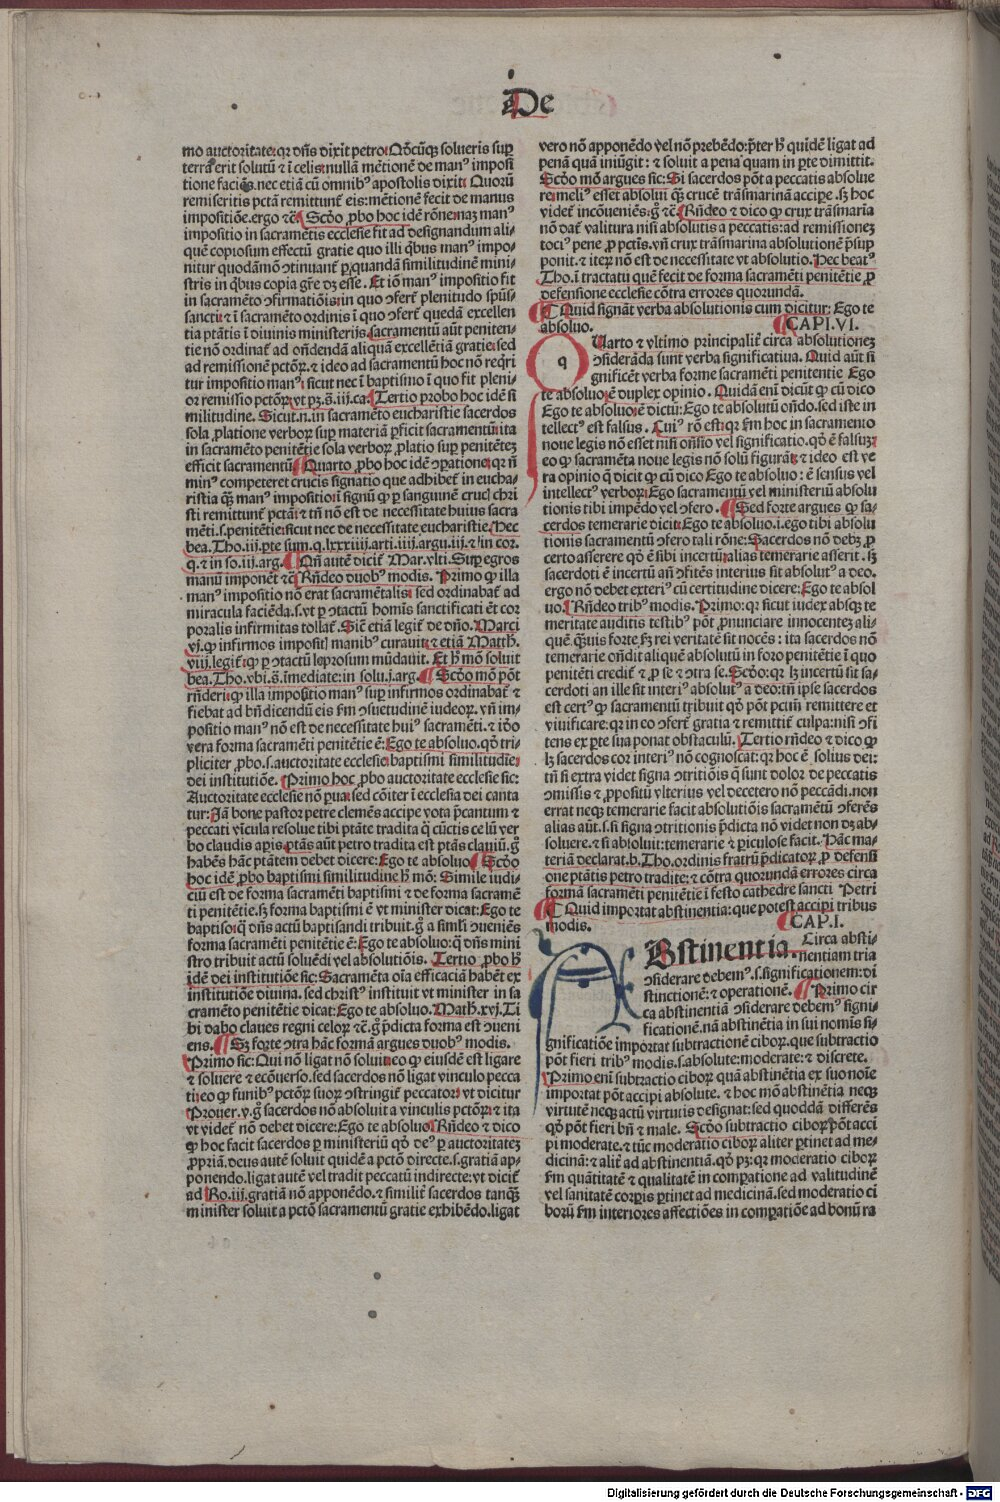 De
mo auctoritate: qꝛ dñs dixit petro: Q̃cũqꝫ solueris suꝑ
terrã erit solutũ ⁊ ĩ celis: nullã mẽtionẽ de manꝰ imposi
tione facies. nec etiã cũ omnibꝰ apostolis dixit: Quorũ
remiseritis pctã remittunt̃ eis: mẽtionẽ fecit de manus
impositiõe. ergo ⁊c̃. Scðo ꝓbo hoc idẽ rõne: naꝫ manꝰ
impositio in sacramẽtis ecclesie fit ad designandum ali-
quẽ copiosum effectũ gratie quo illi q̇bus manꝰ impo-
nitur quodãmõ ↄtinuant̃ ꝑ quandã similitudinẽ mini-
stris in q̇bus copia gr̃e dꝫ esse. Et iõ manꝰ impositio fit
in sacramẽto ↄfirmatiõis: in quo ↄfert̃ plenitudo sp̃us-
sancti: ⁊ ĩ sacramẽto ordinis ĩ quo ↄfert̃ quedã excellen
tia ptãtis ĩ diuinis ministerijs. sacramentũ aũt peniten-
tie nõ ordinat̃ ad oñdendã aliquã excellẽtiã gratie: sed
ad remissionẽ pctõꝝ. ⁊ ideo ad sacramentũ hoc nõ reqr̃i
tur impositio manꝰ: sicut nec ĩ baptismo ĩ quo fit pleni-
or remissio pctõꝝ: vt pꝫ. s̃. iij. ca. Tertio probo hoc idẽ si
militudine. Sicut. n. in sacramẽto eucharistie sacerdos
sola ꝓlatione verboꝝ suꝑ materiã ꝑficit sacramentũ: ita
in sacramẽto penitẽtie sola verboꝝ ꝓlatio suꝑ penitẽteꝫ
efficit sacramentũ. Quarto ꝓbo hoc idẽ ꝯꝑatione: qꝛ ñ
minꝰ competeret crucis signatio que adhibet̃ in eucha-
ristia q̃ꝫ manꝰ impositio: ĩ signũ ꝙ ꝑ sanguinẽ crucĩ chri
sti remittunt̃ pctã: ⁊ tñ nõ est de necessitate huius sacra
mẽti. s. penitẽtie: sicut nec de necessitate eucharistie. Hec
bea. Tho. iij. ꝑte sum. q. lxxxiiij. arti. iiij. argu. iij. ⁊ in cor.
q. ⁊ in so. iij. arg. Qñ autẽ dicit̃ Mar. vlti. Suꝑ egros
manũ imponẽt ⁊c̃. Rñdeo duobꝰ modis. Primo ꝙ illa
manꝰ impositio nõ erat sacramẽtalis: sed ordinabat̃ ad
miracula faciẽda. s. vt ꝑ ↄtactũ hom̃is sanctificati ẽt cor
poralis infirmitas tollat̃. Sic̃ etiã legit̃ de dño. Marci
vj. ꝙ infirmos imposit̃ manibꝰ curauit: ⁊ etiã Matth.
viij. legit̃: ꝙ ꝑ ↄtactũ leprosum mũdauit. Et h̃ mõ soluit
bea. Tho. vbi. s̃. ĩmediate: in solu. j. arg. Scðo mõ põt
rñderi: ꝙ illa impositio manꝰ suꝑ infirmos ordinabat̃ ⁊
fiebat ad bñdicendũ eis ẜm ↄsuetudinẽ iudeoꝝ. vñ im-
positio manꝰ nõ est de necessitate huiꝰ sacramẽti. ⁊ iðo
vera forma sacramẽti penitẽtie ẽ: Ego te absoluo. qð tri-
pliciter ꝓbo. s. auctoritate ecclesie: baptismi similitudĩe:
dei institutiõe. Primo hoc ꝓbo auctoritate ecclesie sic:
Auctoritate ecclesie nõ ꝑua: sed cõiter ĩ ecclesia dei canta
tur: Jã bone pastor petre clemẽs accipe vota p̃cantum ⁊
peccati vĩcula resolue tibi ptãte tradita q̃ cũctis celũ ver
bo claudis aꝑis. ptãs aũt petro tradita est ptãs clauiũ. g̃
habẽs hãc ptãtem debet dicere: Ego te absoluo. Scðo
hoc idẽ ꝓbo baptismi similitudine h̃ mõ: Simile iudi-
ciũ est de forma sacramẽti baptismi ⁊ de forma sacramẽ
ti penitẽtie. sꝫ forma baptismi ẽ vt minister dicat: Ego te
baptiso: q̃ dñs actũ baptisandi tribuit. g̃ a simli ↄueniẽs
forma sacramẽti penitẽtie ẽ: Ego te absoluo: q̃ dñs mini
stro tribuit actũ soluẽdi vel absolutiõis. Tertio ꝓbo h̃
idẽ dei institutiõe sic: Sacramẽta oĩa efficaciã habẽt ex
institutiõe diuina. sed christꝰ instituit vt minister in sa
cramẽto penitẽtie dicat: Ego te absoluo. Math. xvj. Ti
bi dabo claues regni celoꝝ ⁊c̃. g̃ p̃dicta forma est ↄueni
ens. Sꝫ forte ↄtra hãc formã argues duobꝰ modis.
Primo sic: Qui nõ ligat nõ soluit: eo ꝙ eiusdẽ est ligare
⁊ soluere ⁊ ecõuerso. sed sacerdos nõ ligat vinculo pecca
ti: eo ꝙ funibꝰ pctõꝝ suoꝝ ↄstringit̃ peccator: vt dicitur
Prouer. v. g̃ sacerdos nõ absoluit a vinculis pctõꝝ: ⁊ ita
vt videt̃ nõ debet dicere: Ego te absoluo. Rñdeo ⁊ dico
ꝙ hoc facit sacerdos ꝑ ministeriũ qð deꝰ ꝑ auctoritateꝫ
ꝓpriã. deus autẽ soluit quidẽ a pctõ directe. s. gratiã ap-
ponendo. ligat autẽ vel tradit peccatũ indirecte: vt dicit̃
ad Ro. iij. gratiã nõ apponẽdo. ⁊ similit̃ sacerdos tanq̃ꝫ
minister soluit a pctõ sacramentũ gratie exhibẽdo. ligat
vero nõ apponẽdo vel nõ prebẽdo: p̃ter h̃ quidẽ ligat ad
penã quã iniũgit: ⁊ soluit a pena quam in ꝑte dimittit.
Scðo mõ argues sic: Si sacerdos põt a peccatis absolue
re: meliꝰ esset absolui q̃ꝫ crucẽ trãsmarinã acciꝑe. sꝫ hoc
videt̃ incõueniẽs: g̃ ⁊c̃. Rñdeo ⁊ dico ꝙ crux trãsmaria
nõ dat̃ valitura nisi absolutis a peccatis: ad remissioneꝫ
tociꝰ pene ꝓ pctis. vñ crux trãsmarina absolutionẽ p̃suꝑ
ponit. ⁊ iteꝝ nõ est de necessitate vt absolutio. Hec beatꝰ
Tho. ĩ tractatu quẽ fecit de forma sacramẽti penitẽtie ꝓ
defensione ecclesie cõtra errores quorundã.
Quid signãt verba absolutionis cum dicitur: Ego te
absoluo. CAPI. VI.
q Uarto ⁊ vltimo principalit̃ circa absolutioneꝫ
ↄsiderãda sunt verba significatiua. Quid aũt si
gnificẽt verba forme sacramẽti penitentie Ego
te absoluo: ẽ duplex opinio. Quidã enĩ dicũt ꝙ cũ dico
Ego te absoluo: ẽ dictũ: Ego te absolutũ oñdo. sed iste in
tellectꝰ est falsus. Cuiꝰ rõ est: qꝛ ẜm hoc in sacramento
noue legis nõ esset nisi oñsio vel significatio. qð ẽ falsuꝫ:
eo ꝙ sacramẽta noue legis nõ solũ figurãt: ⁊ ideo est ve
ra opinio q̃ dicit ꝙ cũ dico Ego te absoluo: ẽ sensus vel
intellectꝰ verboꝝ: Ego sacramentũ vel ministeriũ absolu
tionis tibi impẽdo vel ↄfero. Sed forte argues ꝙ sa-
cerdos temerarie dicit: Ego te absoluo. i. ego tibi absolu
tionis sacramentũ ↄfero tali rõne: Sacerdos nõ debꝫ ꝓ
certo asserere qð ẽ sibi incertũ: alias temerarie asserit. sꝫ
sacerdoti ẽ incertũ añ ↄfitẽs interius sit absolutꝰ a deo.
ergo nõ debet exteriꝰ cũ certitudine dicere: Ego te absol
uo. Rñdeo tribꝰ modis. Primo: qꝛ sicut iudex absqꝫ te
meritate auditis testibꝰ põt ꝓnunciare innocenteꝫ ali-
quẽ. q̃uis forte ẜꝫ rei veritatẽ sit nocẽs: ita sacerdos nõ
temerarie oñdit aliquẽ absolutũ in foro penitẽtie ĩ quo
penitẽti credit̃ ⁊ ꝓ se ⁊ ↄtra se. Scðo: qꝛ lꝫ incertũ sit sa-
cerdoti an ille sit interiꝰ absolutꝰ a deo: tñ ipse sacerdos
est certꝰ ꝙ sacramentũ tribuit qð põt pctm̃ remittere et
viuificare: qꝛ in eo ↄfert̃ gratia ⁊ remittit̃ culpa: nisi ↄfi
tens ex ꝑte sua ponat obstaculũ. Tertio rñdeo ⁊ dico ꝙ
lꝫ sacerdos cor interiꝰ nõ cognoscat: qꝛ hoc ẽ solius dei:
tñ si extra videt signa ↄtritiõis q̃ sunt dolor de peccatis
ↄmissis ⁊ ꝓpositũ vlterius vel decetero nõ peccãdi. non
errat neqꝫ temerarie facit absolutiõis sacramẽtũ ↄferẽs
alias aũt. s. si signa ↄtritionis p̃dicta nõ videt non dꝫ ab-
soluere. ⁊ si absoluit: temerarie ⁊ ꝑiculose facit. Hãc ma-
teriã declarat. b. Tho. ordinis fratrũ p̃dicatoꝝ. ꝓ defensi
one ptãtis petro tradite: ⁊ cõtra quorundã errores circa
formã sacramẽti penitẽtie ĩ festo cathedre sancti Petri
Quid importat abstinentia: que potest accipi tribus
modis. CAP. I.
ABstinentia. Circa absti-
nentiam tria
ↄsiderare debemꝰ. s. significationem: di
stinctionẽ: ⁊ operationẽ. Primo cir
ca abstinentiã ↄsiderare debemꝰ signi-
ficationẽ. nã abstinẽtia in sui nomĩs si-
gnificatiõe importat subtractionẽ ciboꝝ. que subtractio
põt fieri tribꝰ modis. s. absolute: moderate: ⁊ discrete.
Primo enĩ subtractio ciboꝝ quã abstinẽtia ex suo noĩe
importat põt accipi absolute. ⁊ hoc mõ abstinẽtia neqꝫ
virtutẽ neqꝫ actũ virtutis designat: sed quoddã differẽs
qð põt fieri bñ ⁊ male. Scðo subtractio ciboꝝ põt acci
pi moderate. ⁊ tũc moderatio ciboꝝ aliter ꝑtinet ad me-
dicinã: ⁊ alit̃ ad abstinentiã. qð pꝫ: qꝛ moderatio ciboꝝ
ẜm quãtitatẽ ⁊ qualitatẽ in comꝑatione ad valitudinẽ
vel sanitatẽ corꝑis ꝑtinet ad medicinã. sed moderatio ci
borũ ẜm interiores affectiões in comꝑatiõe ad bonũ ra
Digitalisierung gefördert durch die Deutsche Forschungsgemeinschaft - DFG